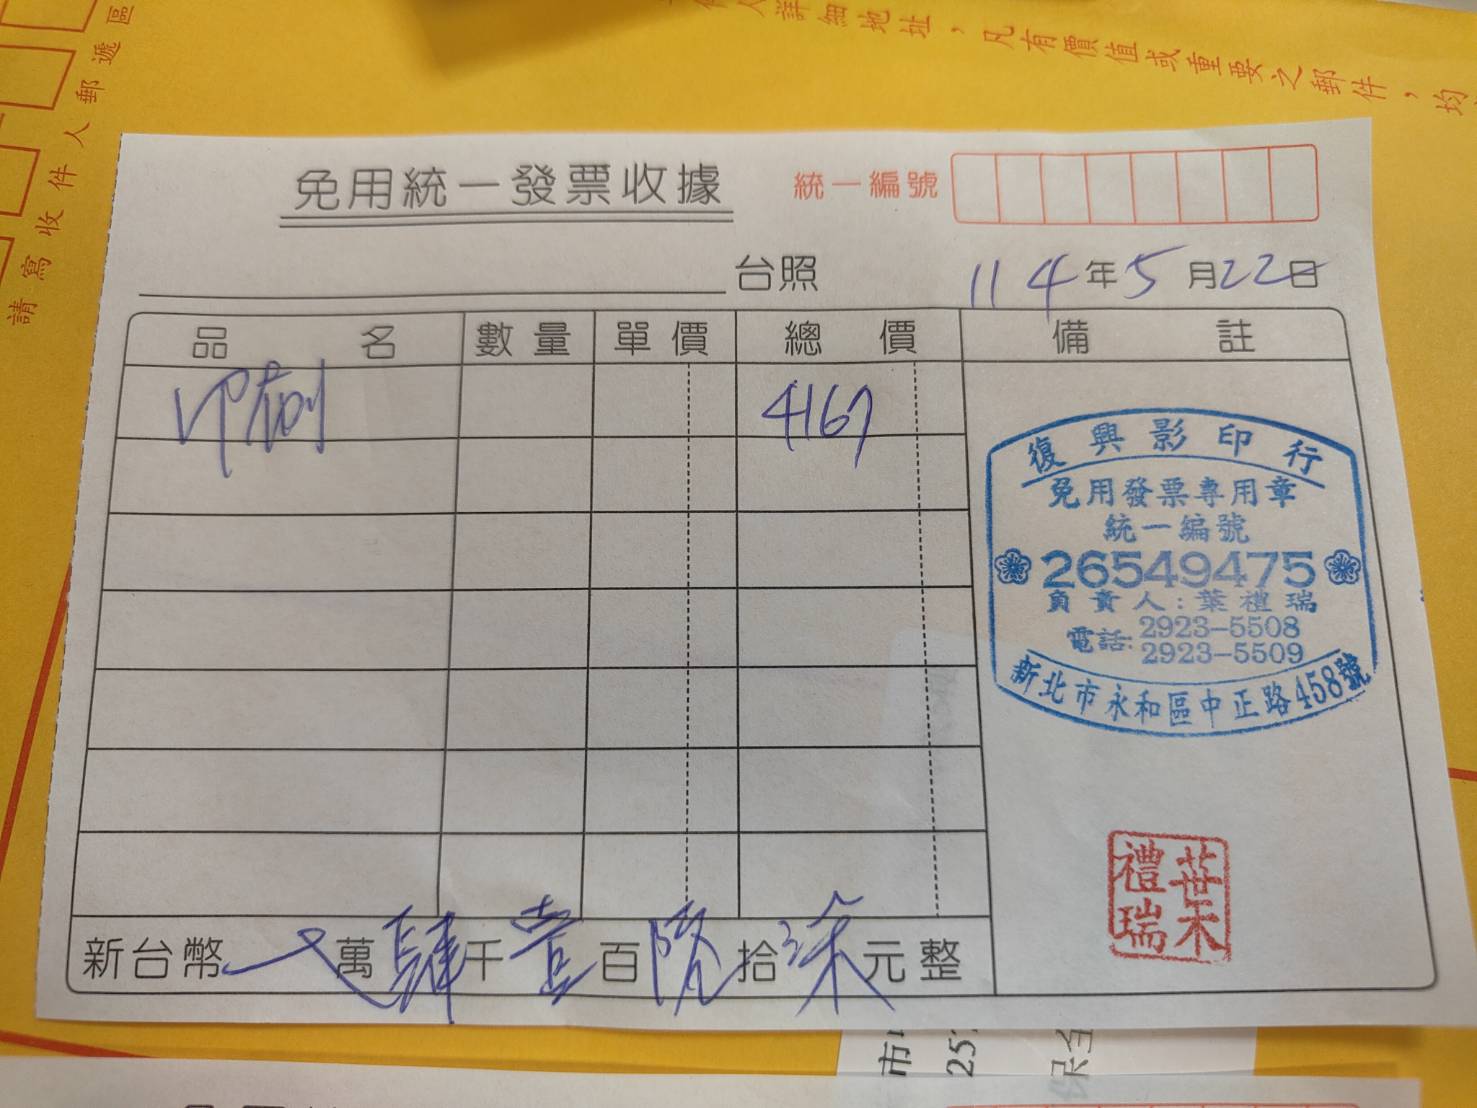 人詳細地址，凡有價值或重要之郵件，均
請寫收件人郵遞區
免用統一發票收據
統一編號
台照
114年5月22日
品名 數量 單價 總價 備註
印刷 4167
復興影印行
免用發票專用章
統一編號
26549475
負責人：葉禮瑞
電話: 2923-5508
2923-5509
新北市永和區中正路458號
葉禮瑞
新台幣 萬肆千壹百陸拾柒元整
市
257